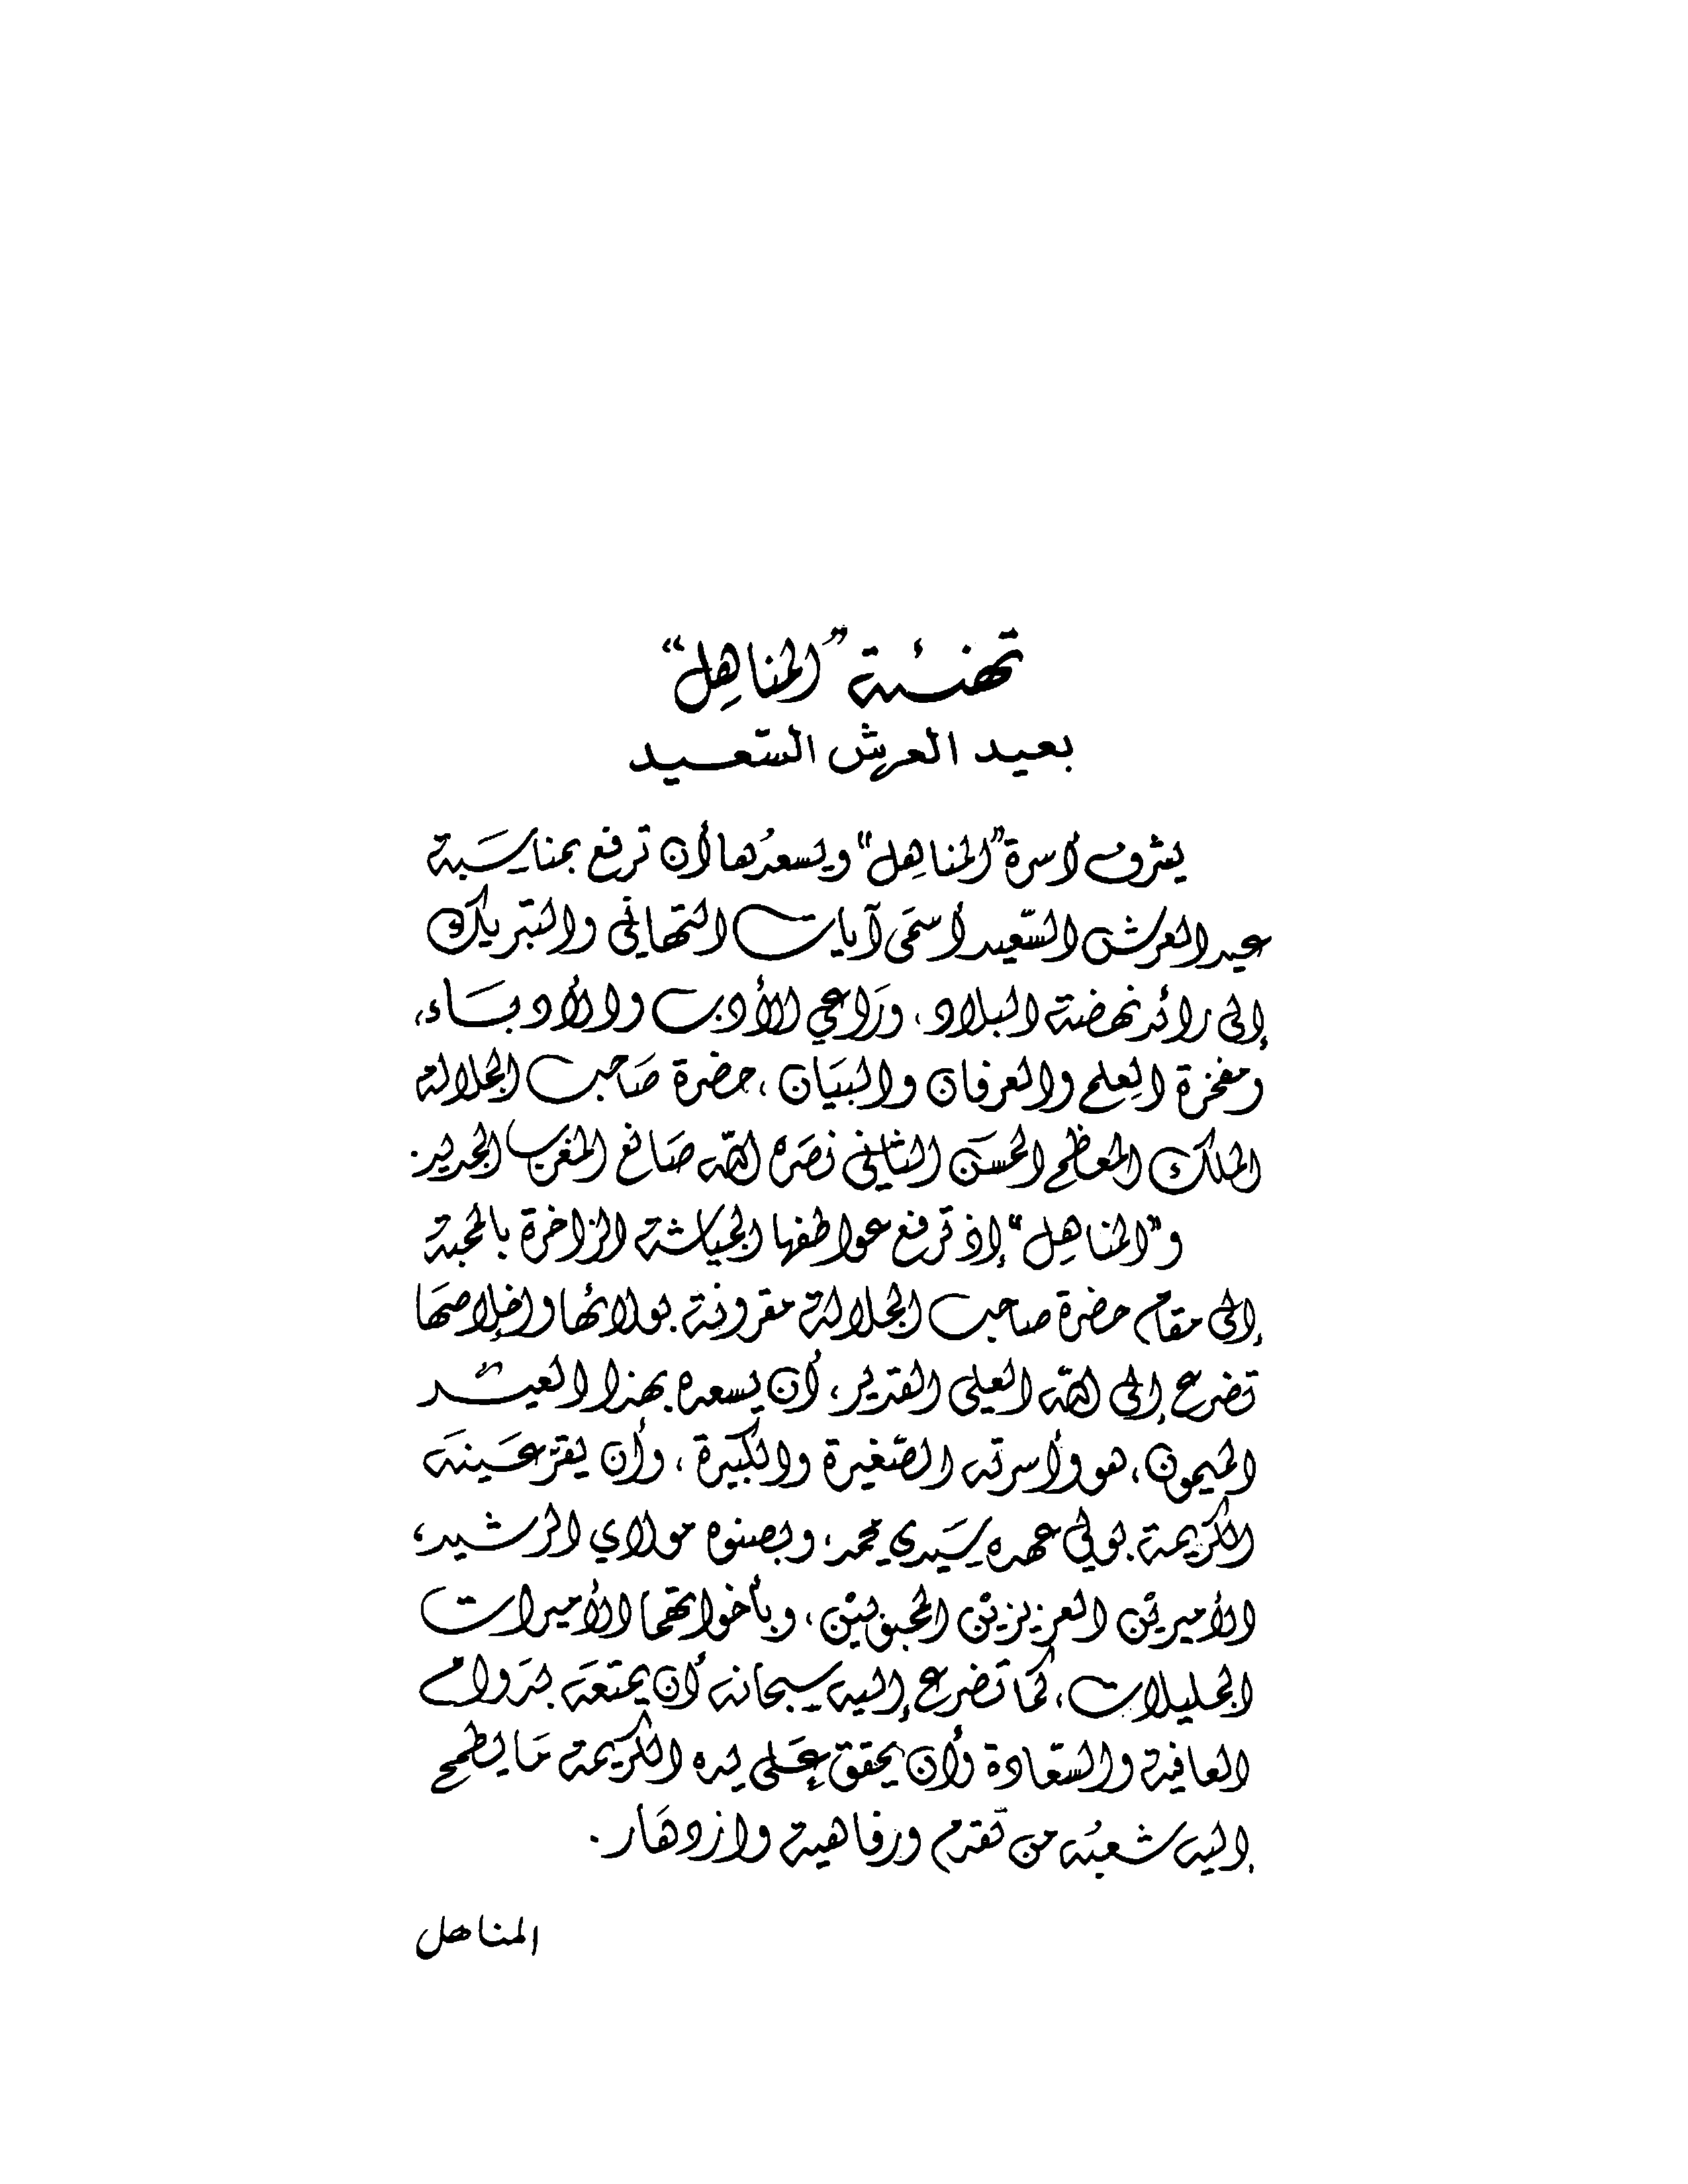 تهنئة "المناهل"
بعيد العرش السّعيد
يشرف أسرة "المناهل" ويسعدُها أن ترفع بمناسَبة
عيد العرش السّعيد أسمَى آيات التهاني والتبريك
إلى رائد نهضة البلاد، ورَاعي الأدب والأدبَاء،
ومفخرة العِلم والعرفان والبيَان، حضرة صَاحب الجلالة
الملك المعظم الحسَن الثاني نصَره الله صَانع المغرب الجديد.
و"المناهِل" إذ ترفع عواطفها الجياشة الزاخرة بالمحبة
إلى مقام حضرة صاحب الجلالة مقرونة بولائها وإخلاصهَا
تضرع إلى الله العلي القدير، أن يسعده بهذا العيد
الميمون، هو وأسرته الصّغيرة والكبيرة، وأن يقرّ عَينَه
الكريمة بولي عهده سَيدي محمد، وبصنوه مولاي الرشيد،
الأميريْن العزيزيْن المحبوبيْن، وبأخواتهما الأميرات
الجليلات، كمَا تضرع إليه سبحانه أن يمتعَه بدَوام
العافية والسّعادة وأن يحقق عَلى يده الكريمة مَا يطمح
إليه شعبُه من تقدم ورفاهية وازدهَار.
المناهل